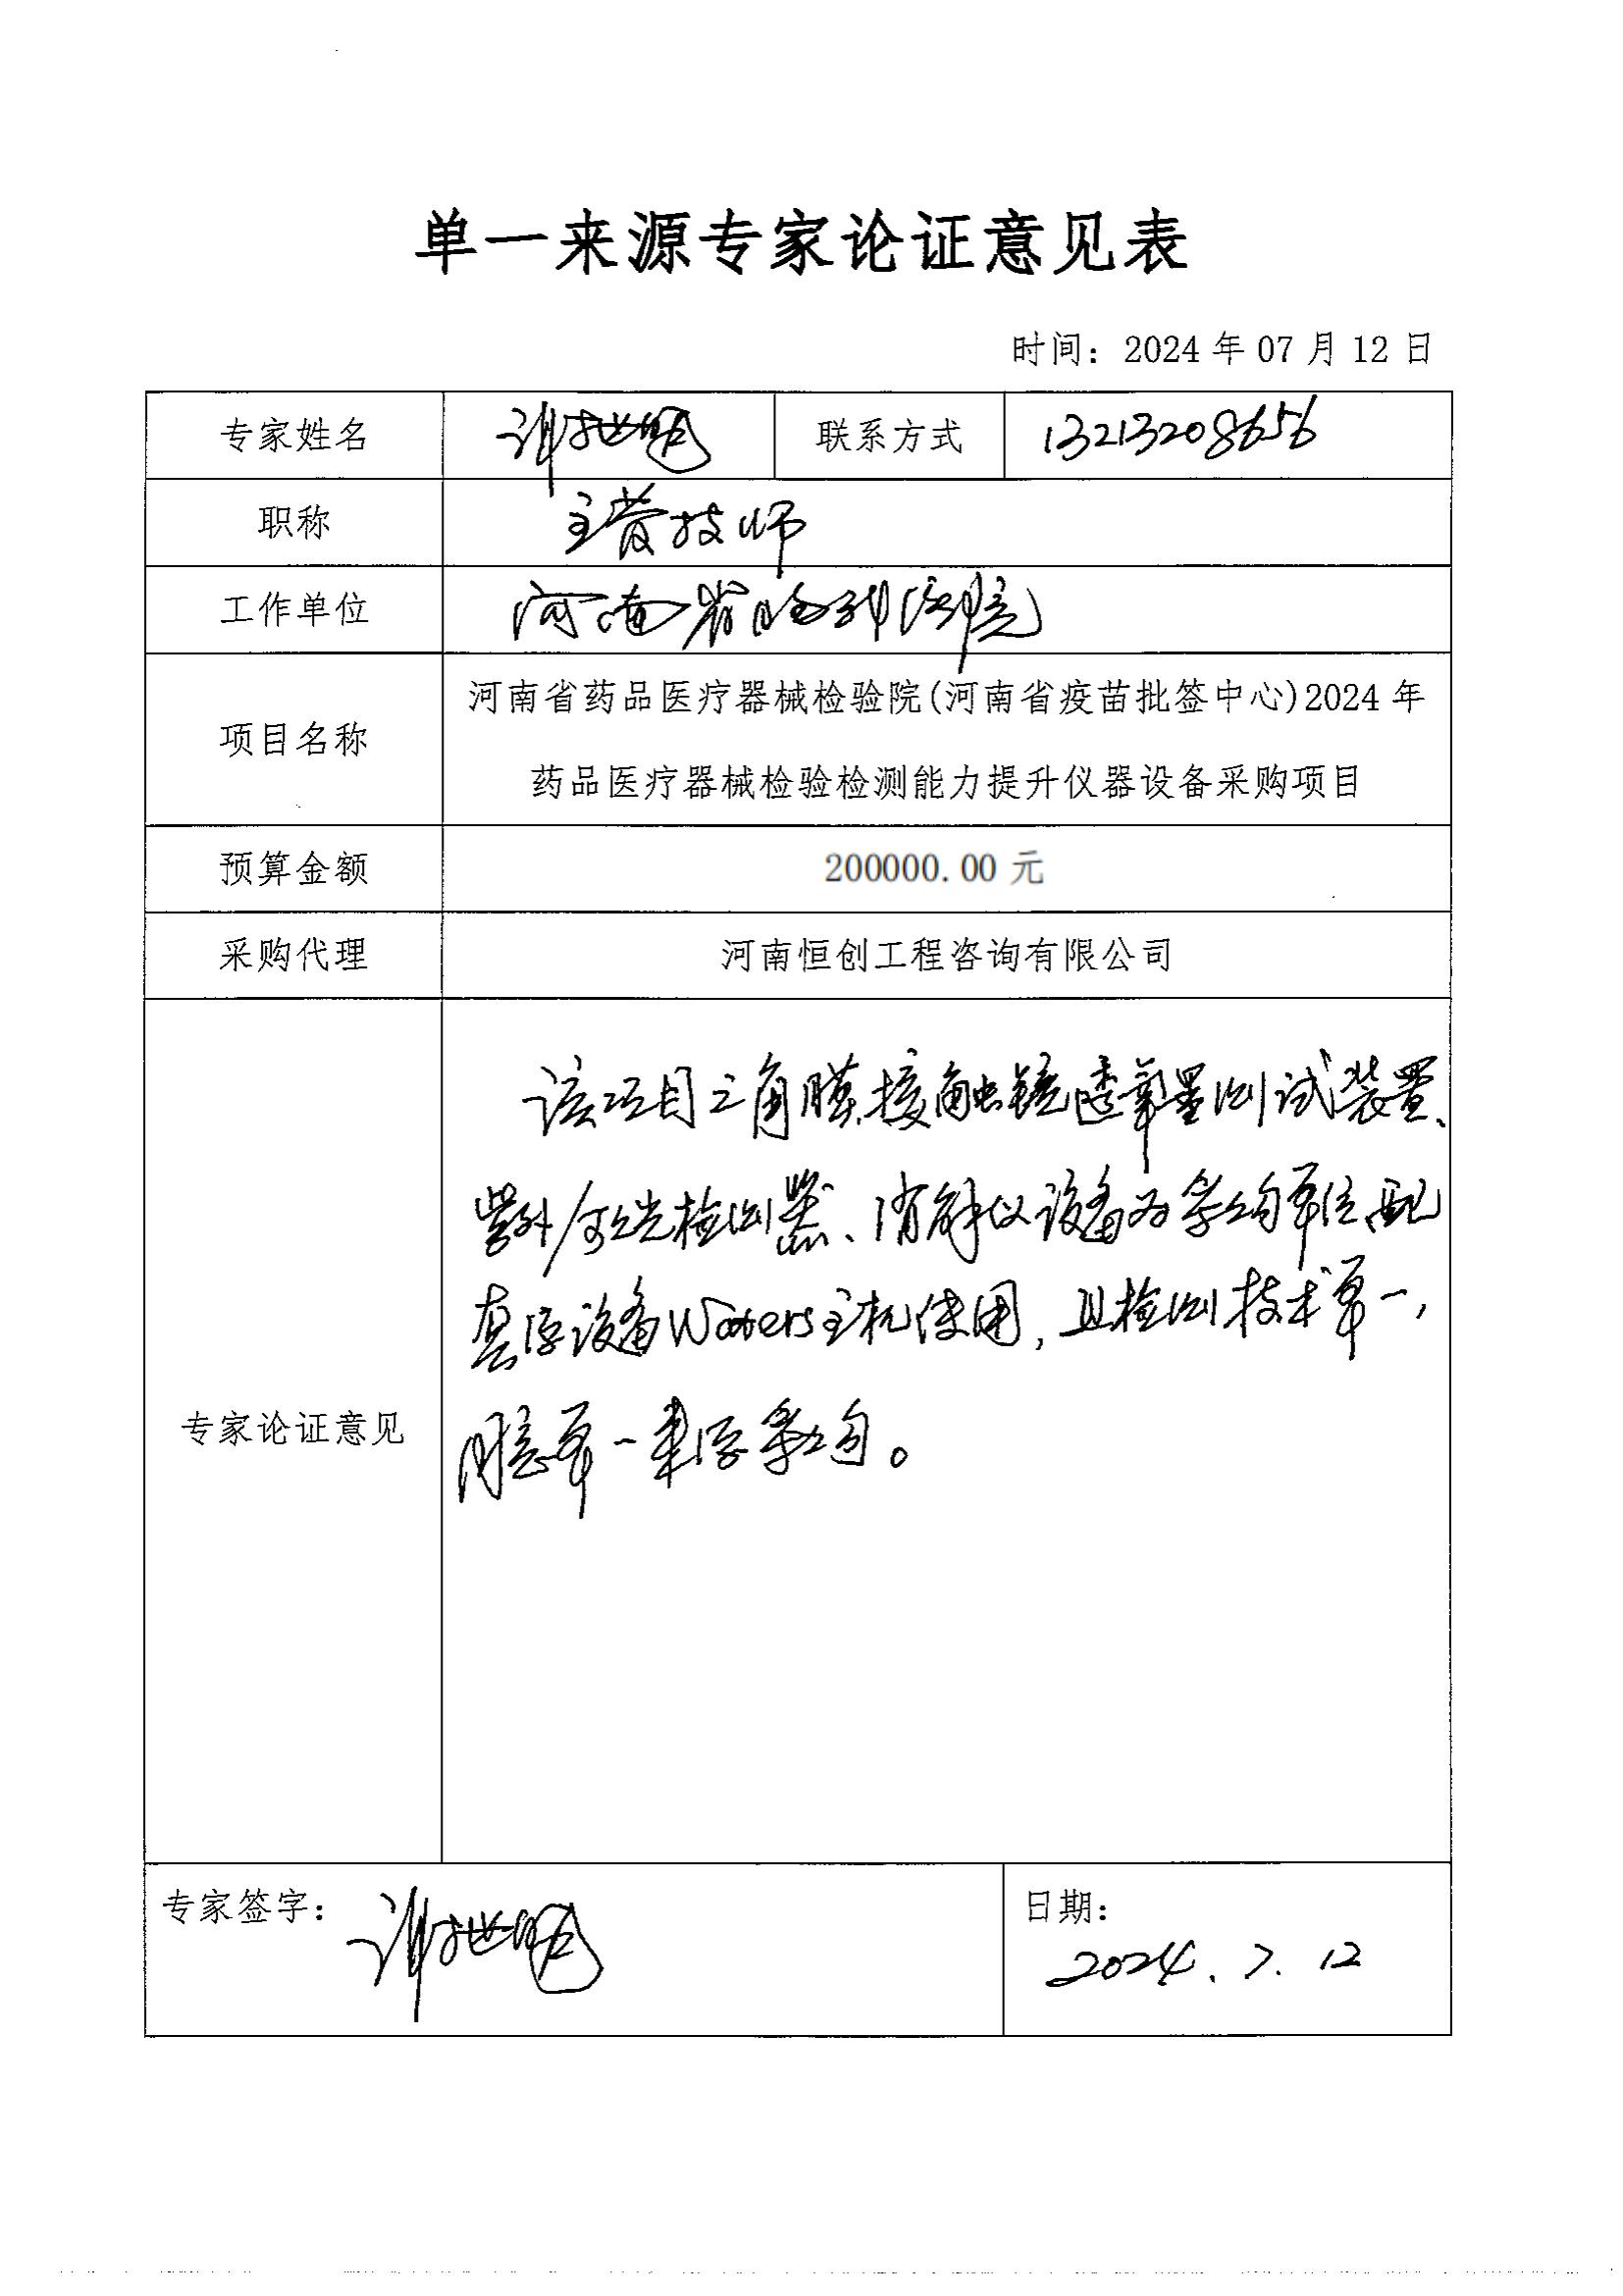 单一来源专家论证意见表
时间：2024 年 07 月 12 日
专家姓名
联系方式 13213208656
职称 主管技师
工作单位 河南省 院
项目名称 河南省药品医疗器械检验院(河南省疫苗批签中心)2024 年
药品医疗器械检验检测能力提升仪器设备采购项目
预算金额 200000.00 元
采购代理 河南恒创工程咨询有限公司
专家论证意见
该项目之角膜接触镜透氧量测试装置、
紫外/荧光检测器、消解仪设备为采购单位配
套原设备Waters主机使用，且检测技术单一，
同意单一来源采购。
专家签字：
日期：
2024.7.12